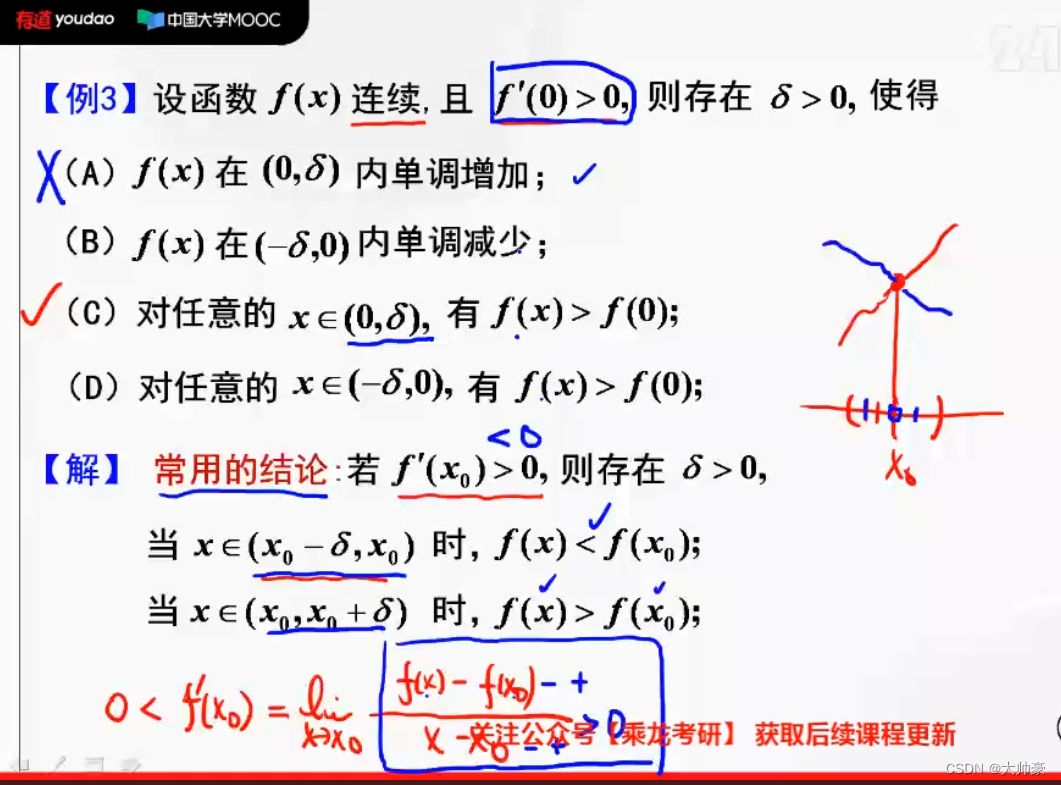 有道 youdao 中国大学MOOC
【例3】设函数 f(x) 连续, 且 f′(0) > 0, 则存在 δ > 0, 使得
(A) f(x) 在 (0,δ) 内单调增加;
(B) f(x) 在 (−δ,0) 内单调减少;
(C) 对任意的 x∈(0,δ), 有 f(x) > f(0);
(D) 对任意的 x∈(−δ,0), 有 f(x) > f(0);
< 0
【解】 常用的结论: 若 f′(x₀) > 0, 则存在 δ > 0,
x₀
当 x∈(x₀−δ,x₀) 时, f(x) < f(x₀);
当 x∈(x₀,x₀+δ) 时, f(x) > f(x₀);
0 < f′(x₀) = lim x→x₀ (f(x) − f(x₀))/(x − x₀) − + > 0 − +
关注公众号【乘龙考研】 获取后续课程更新
CSDN @大帅豪